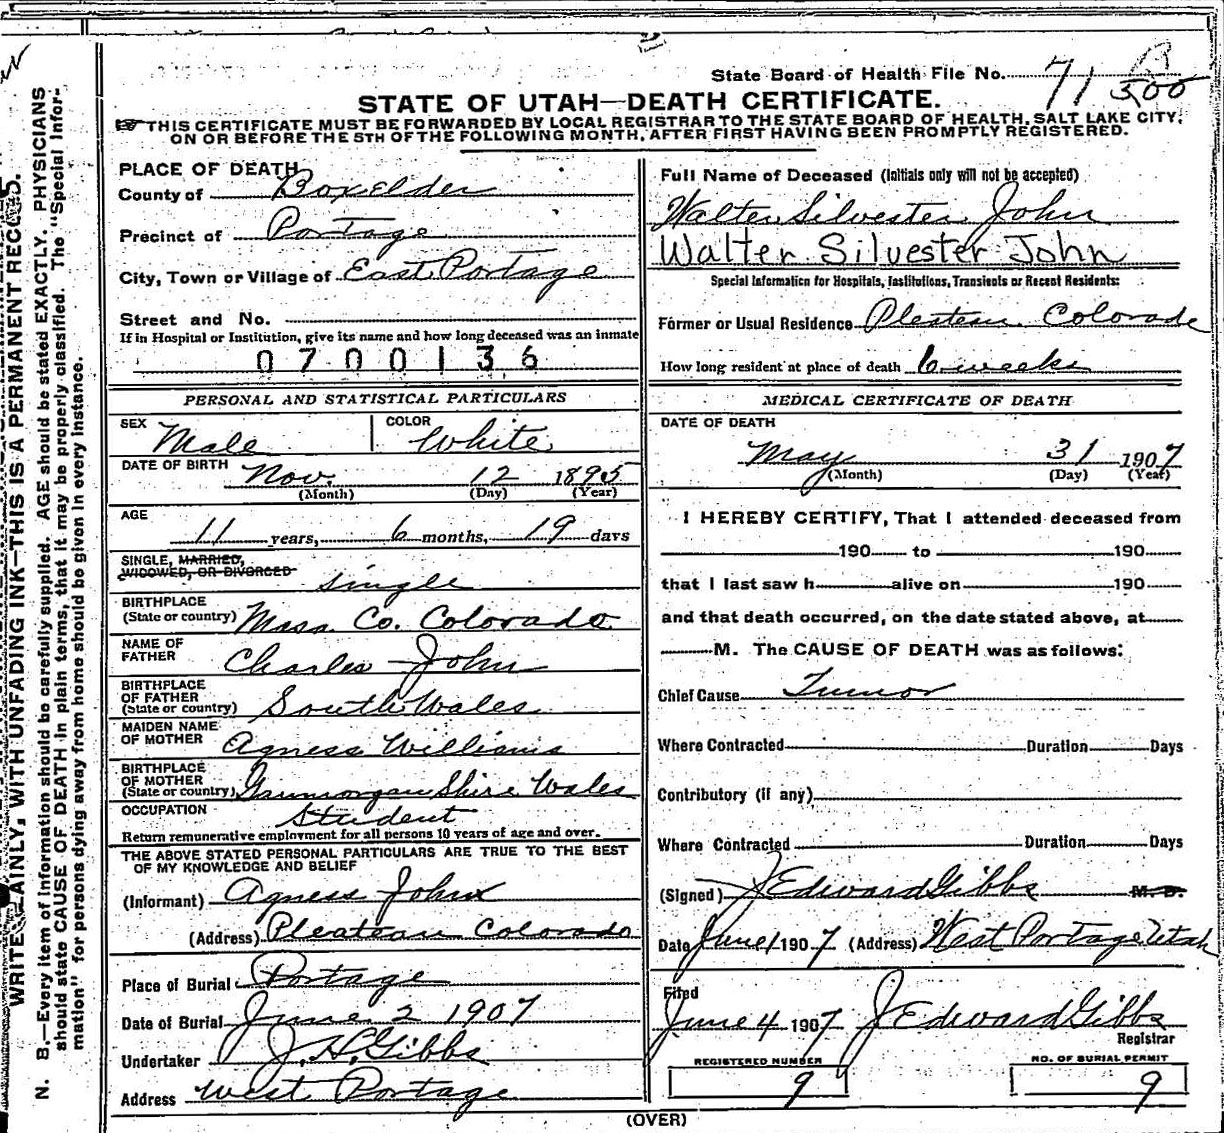 State Board of Health File No. 71 B 300
STATE OF UTAH—DEATH CERTIFICATE.
THIS CERTIFICATE MUST BE FORWARDED BY LOCAL REGISTRAR TO THE STATE BOARD OF HEALTH, SALT LAKE CITY,
ON OR BEFORE THE 5TH OF THE FOLLOWING MONTH, AFTER FIRST HAVING BEEN PROMPTLY REGISTERED.
PLACE OF DEATH
County of Box Elder
Precinct of Portage
City, Town or Village of East Portage
Street and No.
If in Hospital or Institution, give its name and how long deceased was an inmate
0700136
Full Name of Deceased (Initials only will not be accepted)
Walter Silvester John
Walter Silvester John
Special Information for Hospitals, Institutions, Transients or Recent Residents:
Former or Usual Residence Plesteau Colorade
How long resident at place of death 6 weeks
PERSONAL AND STATISTICAL PARTICULARS
SEX Male COLOR White
DATE OF BIRTH Nov. 12 1895
(Month) (Day) (Year)
AGE
11 years, 6 months, 19 days
SINGLE, MARRIED,
WIDOWED, OR DIVORCED single
BIRTHPLACE
(State or country) Massa Co. Colorado
NAME OF
FATHER Charles John
BIRTHPLACE
OF FATHER
(State or country) South Wales
MAIDEN NAME
OF MOTHER Agness Williams
BIRTHPLACE
OF MOTHER
(State or country) Gannmorgan Shire Wales
OCCUPATION Student
Return remunerative employment for all persons 10 years of age and over.
THE ABOVE STATED PERSONAL PARTICULARS ARE TRUE TO THE BEST
OF MY KNOWLEDGE AND BELIEF
(Informant) Agness John
(Address) Pleateau Colorado
Place of Burial Portage
Date of Burial June 2 1907
Undertaker J. H. Gibbs
Address West Portage
MEDICAL CERTIFICATE OF DEATH
DATE OF DEATH
May 31 1907
(Month) (Day) (Year)
I HEREBY CERTIFY, That I attended deceased from
190 to 190
that I last saw h alive on 190
and that death occurred, on the date stated above, at
M. The CAUSE OF DEATH was as follows:
Chief Cause Tumor
Where Contracted Duration Days
Contributory (if any)
Where Contracted Duration Days
(Signed) J Edward Gibbs M. D.
Date June 1 1907 (Address) West Portage Utah
Filed
June 4 1907 J Edward Gibbs
Registrar
REGISTERED NUMBER
9
NO. OF BURIAL PERMIT
9
(OVER)
WRITE PLAINLY, WITH UNFADING INK—THIS IS A PERMANENT RECORD.
N. B.—Every item of information should be carefully supplied. AGE should be stated EXACTLY. PHYSICIANS
should state CAUSE OF DEATH in plain terms, that it may be properly classified. The "Special Infor-
mation" for persons dying away from home should be given in every instance.